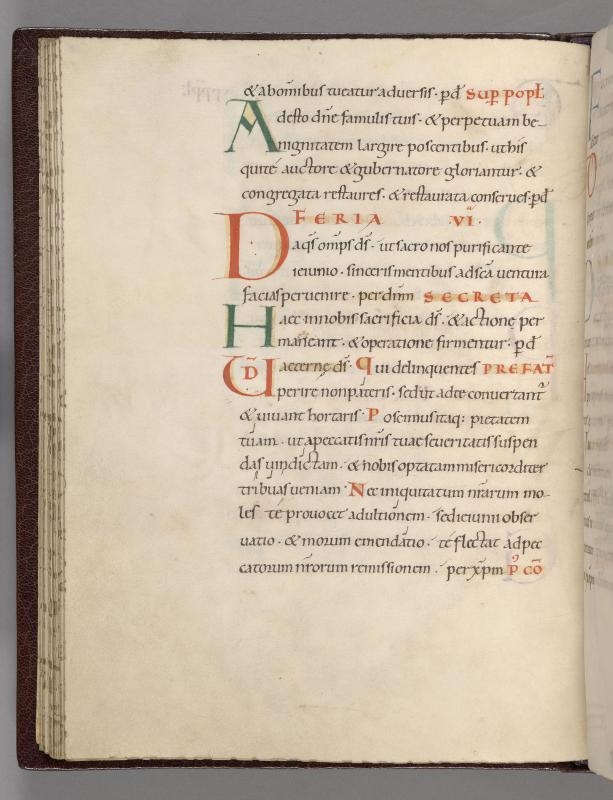 & ab omnibus tueatur adversis · pd̄ SUP POPL̄
Adesto dn̄e famulis tuis · & perpetuam be-
nignitatem largire poscentibus · ut his
qui te auctore & gubernatore gloriantur · &
congregata restaures · & restaurata conserves · pd̄
FERIA VI ·
Da q̄s omp̄s d̄s · ut sacro nos purificante
ieiunio · sinceris mentibus ad sc̄a ventura
facias pervenire · per dn̄m SECRETA
Haec in nobis sacrificia d̄s · & actione per
maneant · & operatione firmentur · pd̄
UD̄ aeterne d̄s · Qui delinquentes PREFAT̄
perire non pateris · sed ut ad te convertant̄
& vivant hortaris · Poscimus itaq: pietatem
tuam · ut a peccatis nr̄is tuae severitatis suspen
das vindictam · & nobis optatam misericorditer
tribuas veniam · Nec iniquitatum nr̄arum mo-
les te provocet ad ultionem · sed ieiunii obser
vatio · & morum emendatio · te flectat ad pec
catorum nr̄orum remissionem · per xp̄m P CŌ